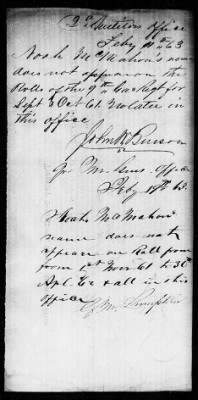 2d Auditors Office
Feby 11th 63
Noah McMahon's name
does not appear on the
Rolls of the 9th Cav Regt for
Sept & Oct 61 no later in
this office
John R Benson
Qr Mr Genl Office
Feby 19th 63.
Noah McMahon
name does not
appear on Roll from
from 1st Novr 61 to 30th
Apl. 62 & all in this
office